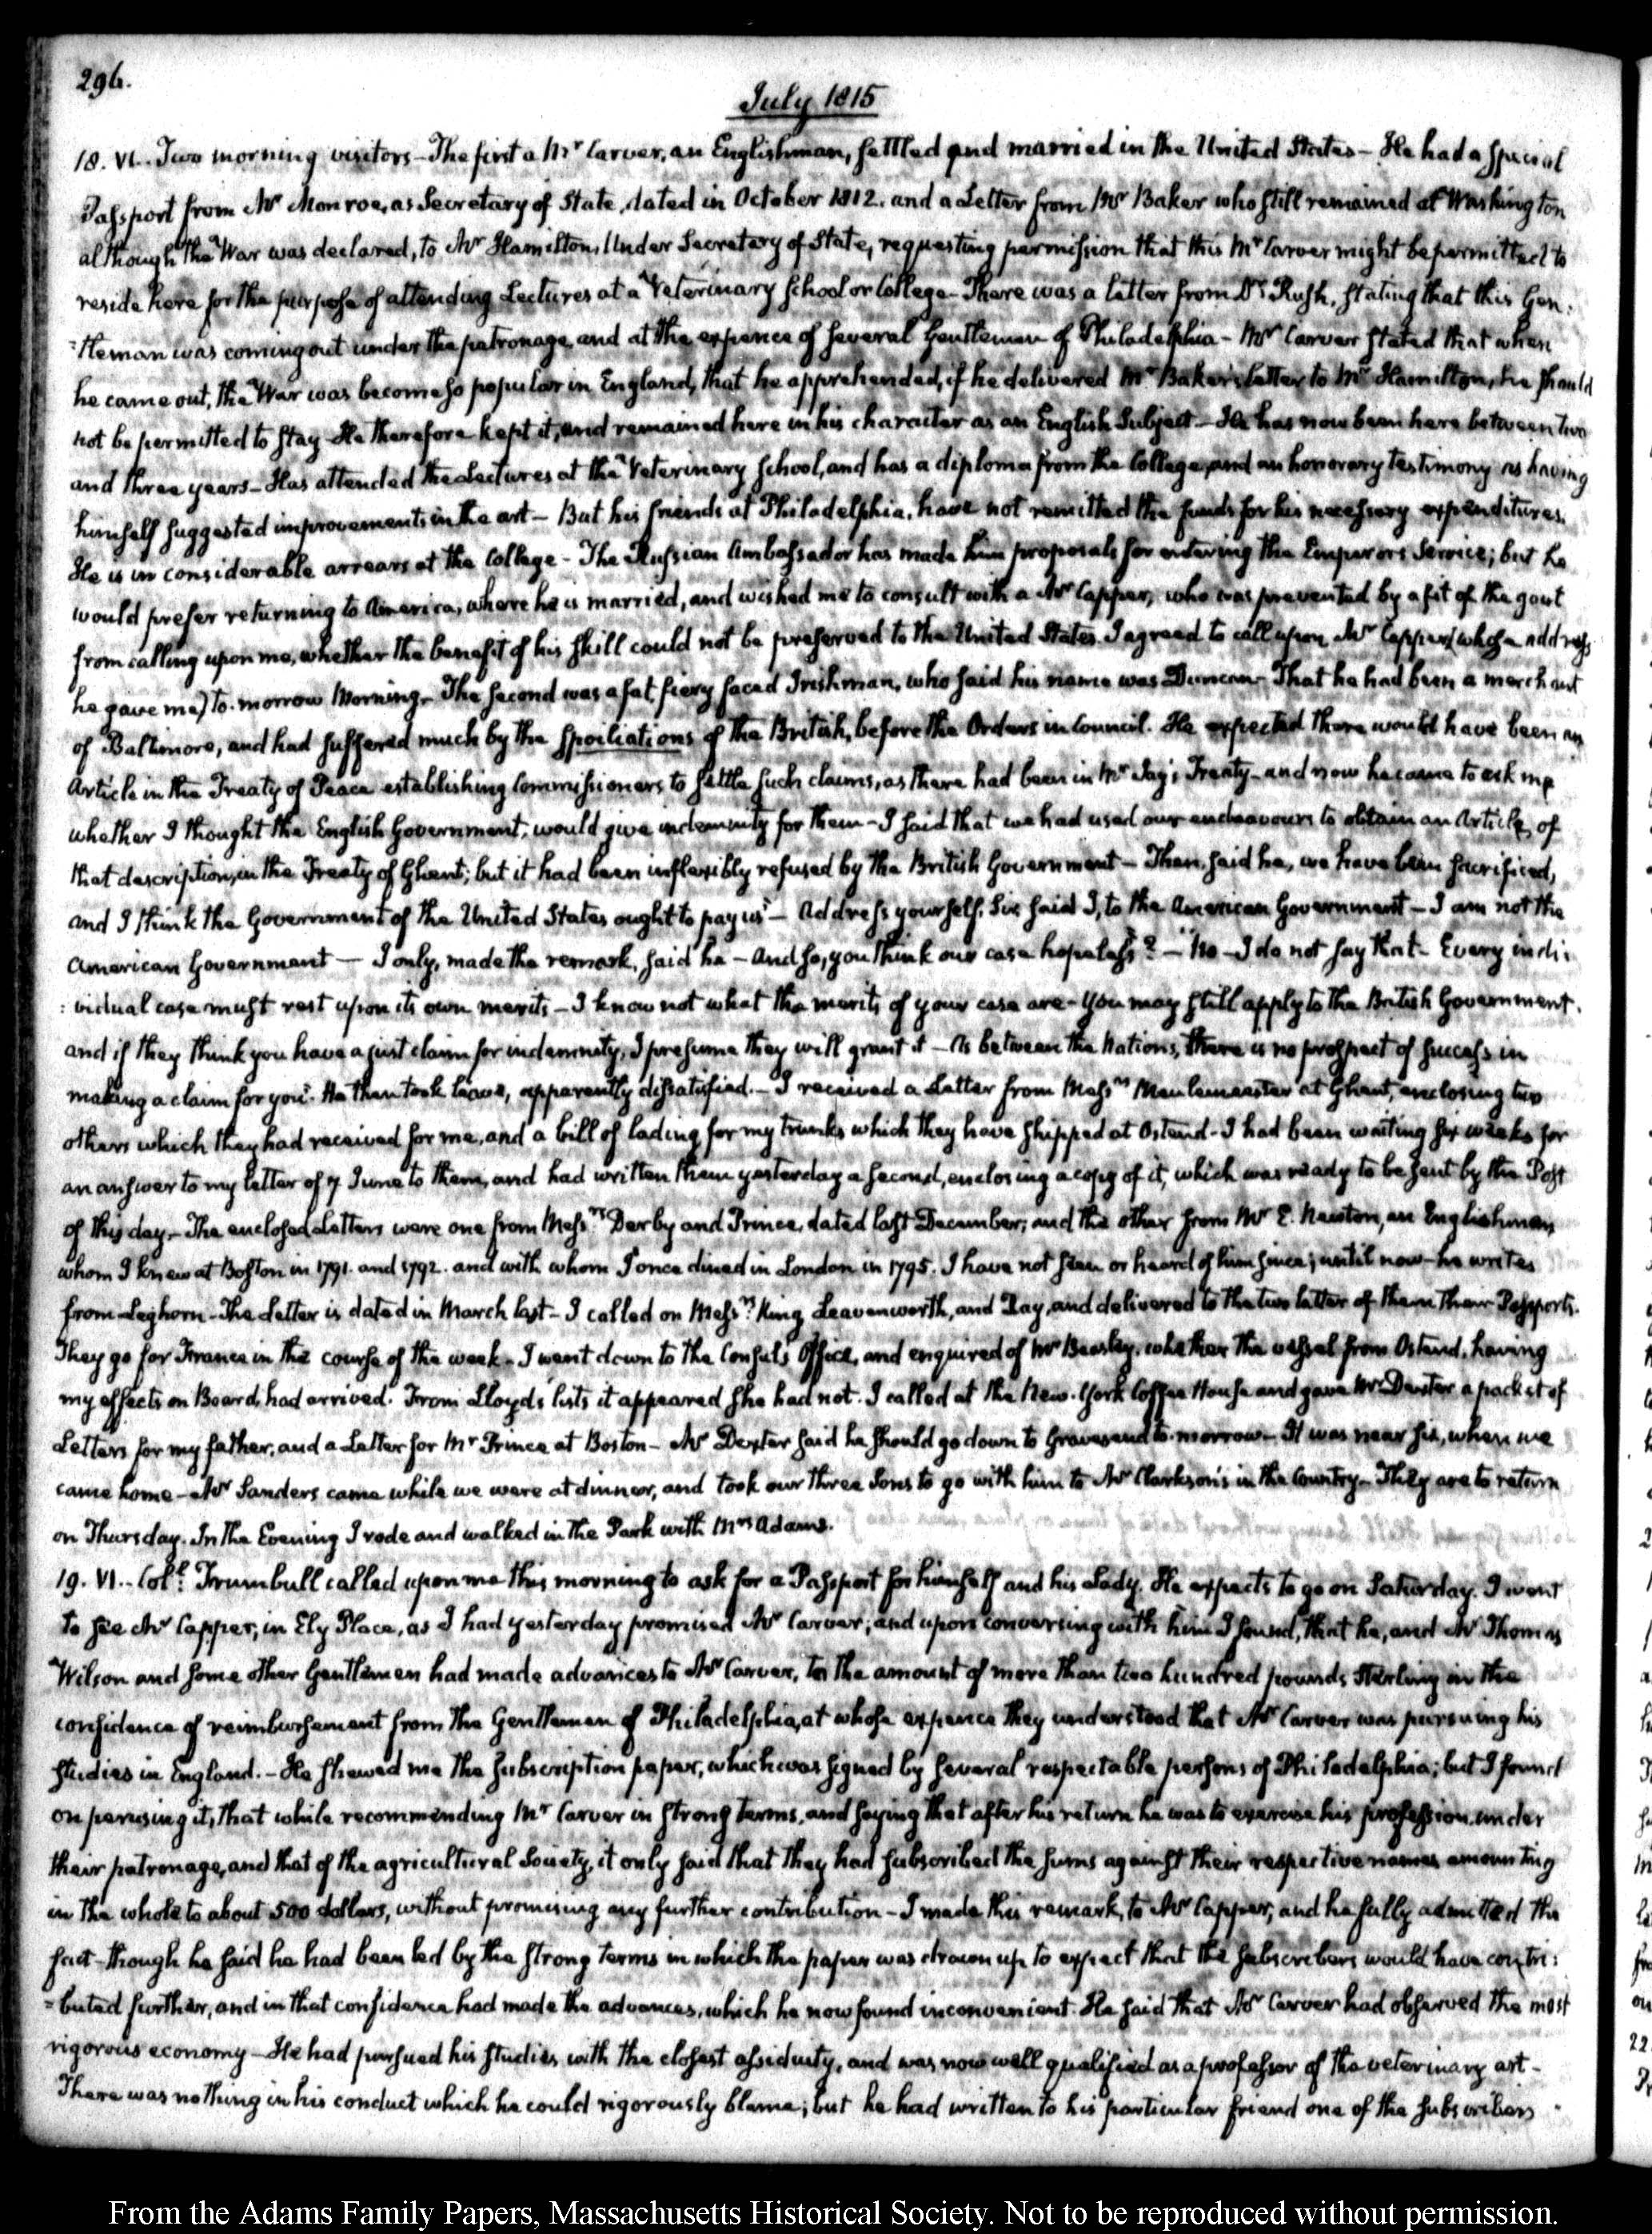 296.
July 1815
18. VI. Two morning visitors – The first a Mr Carver, an Englishman, settled and married in the United States – He had a special
Passport from Mr Monroe, as Secretary of State, dated in October 1812. and a Letter from Mr Baker who still remained at Washington
although the War was declared, to Mr Hamilton, Under Secretary of State, requesting permission that this Mr Carver might be permitted to
reside here for the purpose of attending Lectures at a Veterinary School or College – There was a letter from Dr Rush, stating that this Gen:
:tleman was coming out under the patronage, and at the expence of several Gentlemen of Philadelphia – Mr Carver stated that when
he came out, the War was become so popular in England, that he apprehended, if he delivered Mr Baker's letter to Mr Hamilton, he should
not be permitted to stay – He therefore kept it, and remained here in his character as an English Subject – He has now been here between two
and three years – Has attended the Lectures at the Veterinary School, and has a diploma from the College, and an honorary testimony as having
himself suggested improvements in the art – But his friends at Philadelphia, have not remitted the funds for his necessary expenditures.
He is in considerable arrears at the College – The Russian Ambassador has made him proposals for entering the Emperors Service; but he
would prefer returning to America, where he is married, and wished me to consult with a Mr Capper, who was prevented by a fit of the gout
from calling upon me, whether the benefit of his skill could not be preserved to the United States. I agreed to call upon Mr Capper (whose address
he gave me) to-morrow Morning – The second was a fat, fiery faced Irishman, who said his name was Duncan – That he had been a merchant
of Baltimore, and had suffered much by the spoiliations of the British, before the Orders in Council. He expected there would have been an
Article in the Treaty of Peace establishing Commissioners to settle such claims, as there had been in Mr Jay's Treaty – and now he came to ask me
whether I thought the English Government, would give indemnity for them – I said that we had used our endeavours to obtain an Article, of
that description, in the Treaty of Ghent; but it had been inflexibly refused by the British Government – Then, said he, we have been sacrificed,
and I think the Government of the United States ought to pay us" – Address yourself, Sir, said I, to the American Government – I am not the
American Government — I only, made the remark, said he – And so, you think our case hopeless? – "No – I do not say that – Every indi:
:vidual case must rest upon its own merits – I know not what the merits of your case are – You may still apply to the British Government.
and if they think you have a just claim for indemnity, I presume they will grant it – As between the Nations, there is no prospect of success in
making a claim for you". He then took leave, apparently dissatisfied. – I received a Letter from Messrs Meulemeester at Ghent, enclosing two
others which they had received for me, and a bill of lading for my trunks which they have shipped at Ostend – I had been waiting six weeks for
an answer to my letter of 7 June to them, and had written them yesterday a second, enclosing a copy of it, which was ready to be sent by the Post
of this day – The enclosed Letters were one from Messrs Derby and Prince, dated last December; and the other from Mr E. Newton, an Englishman,
whom I knew at Boston in 1791. and 1792. and with whom I once dined in London in 1795. I have not seen or heard of him since; until now – he writes
from Leghorn – The Letter is dated in March last – I called on Messrs King, Leavenworth, and Lay, and delivered to the two latter of them their Passports.
They go for France in the course of the week – I went down to the Consul's Office, and enquired of Mr Beasley, whether the vessel from Ostend, having
my effects on Board, had arrived. From Lloyds' lists it appeared she had not. I called at the New-York Coffee House and gave Mr Dexter a packet of
Letters for my father, and a Letter for Mr Prince at Boston – Mr Dexter said he should go down to Gravesend to-morrow – It was near six, when we
came home – Mr Sanders came while we were at dinner, and took our three Sons to go with him to Mr Clarkson's in the Country – They are to return
on Thursday. In the Evening I rode and walked in the Park with Mrs Adams.
19. VI. – Coll. Trumbull called upon me this morning to ask for a Passport for himself and his Lady. He expects to go on Saturday. I went
to see Mr Capper, in Ely Place, as I had yesterday promised Mr Carver; and upon conversing with him I found, that he, and Mr Thomas
Wilson and some other Gentlemen had made advances to Mr Carver, to the amount of more than two hundred pounds Sterling in the
confidence of reimbursement from the Gentlemen of Philadelphia, at whose expence they understood that Mr Carver was pursuing his
studies in England. – He shewed me the subscription paper, which was signed by several respectable persons of Philadelphia; but I found
on perusing it, that while recommending Mr Carver in strong terms, and saying that after his return he was to exercise his profession under
their patronage, and that of the agricultural Society, it only said that they had subscribed the sums against their respective names amounting
in the whole to about 500 dollars, without promising any further contribution – I made this remark, to Mr Capper, and he fully admitted the
fact – though he said he had been led by the strong terms in which the paper was drawn up, to expect that the subscribers would have contri:
:buted further, and in that confidence had made the advances, which he now found inconvenient. He said that Mr Carver had observed the most
rigorous economy – He had pursued his studies with the closest assiduity, and was now well qualified as a professor of the veterinary art –
There was nothing in his conduct which he could rigorously blame; but he had written to his particular friend one of the subscribers
From the Adams Family Papers, Massachusetts Historical Society. Not to be reproduced without permission.